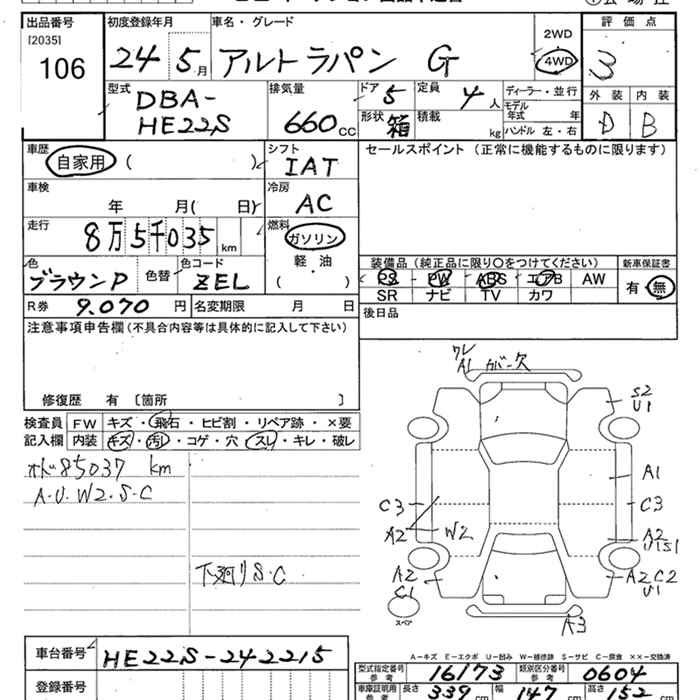 出品番号
[2035]
106
初度登録年月
24 5月
車名・グレード
アルトラパン G
2WD
4WD
評価点
3
外装 内装
D B
型式
DBA-
HE22S
排気量
660cc
ドア 5
定員 4人
形状 箱
積載 kg
ディーラー・並行
モデル年式 年
ハンドル 左・右
車歴
自家用 ( )
シフト
IAT
セールスポイント (正常に機能するものに限ります)
車検
年 月( 日)
冷房
AC
走行
8万5千035km
燃料
ガソリン
軽・油
( )
色
ブラウンP
色替
色コード
ZEL
装備品 (純正品に限り○をつけてください)
新車保証書
PS PW ABS エアB AW
有 無
SR ナビ TV カワ
R券 9.070円
名変期限 月 日
後日品
注意事項申告欄 (不具合内容等は具体的に記入して下さい)
修復歴 有 [箇所 ]
検査員
記入欄
FW キズ・飛石・ヒビ割・リペア跡・×要
内装 キズ・汚レ・コゲ・穴・スレ・キレ・破レ
オド85037 km
A・U・W2・S・C
下廻りS・C
ワレ
A1 カバー欠
S2
U1
A1
C3
C3
A2
W2
A2
U1S1
A2
C1
A2C2
U1
スペア
A3
A-キズ E-エクボ U-凹み W-補修跡 S-サビ C-腐食 ××-交換済
車台番号
HE22S-242215
登録番号
型式指定番号
16173
類別区分番号
0604
車庫証明用
参考
長さ 339cm
幅 147cm
高さ 152cm